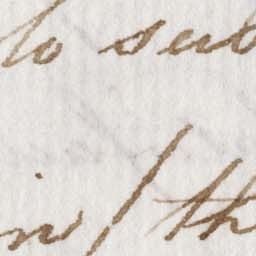 to sub
in / th